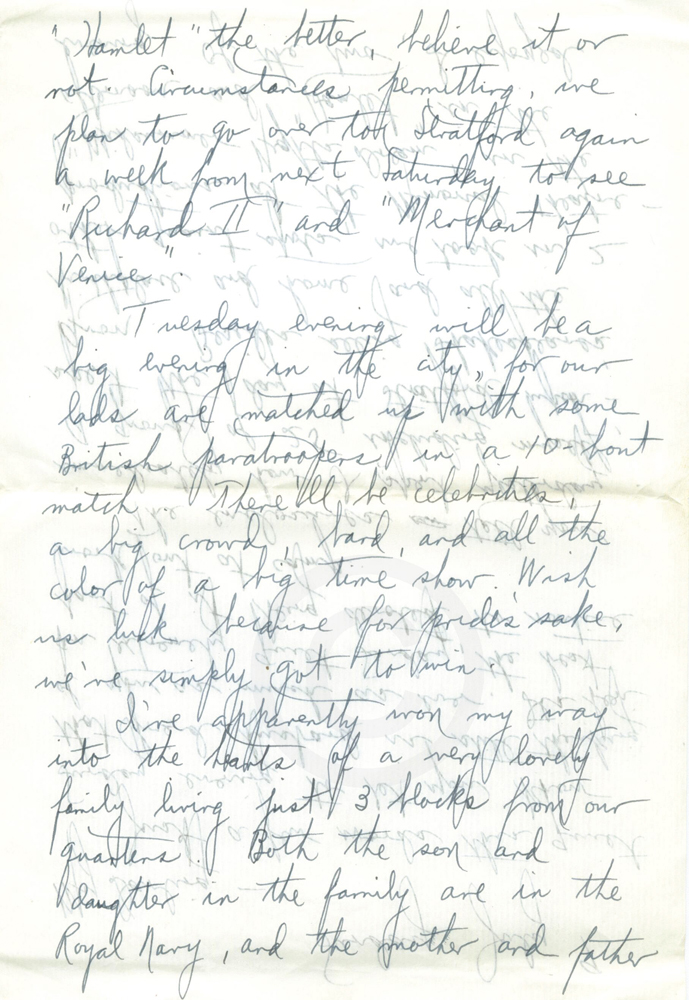 "Hamlet" the better, believe it or
not. Circumstances permitting, we
plan to go over to Stratford again
a week from next Saturday to see
"Richard II" and "Merchant of
Venice".
Tuesday evening will be a
big evening in the city, for our
lads are matched up with some
British paratroopers in a 10-bout
match. There'll be celebrities,
a big crowd, band, and all the
color of a big time show. Wish
us luck because for pride's sake,
we've simply got to win.
I've apparently won my way
into the hearts of a very lovely
family living just 3 blocks from our
quarters. Both the son and
daughter in the family are in the
Royal Navy, and the mother and father